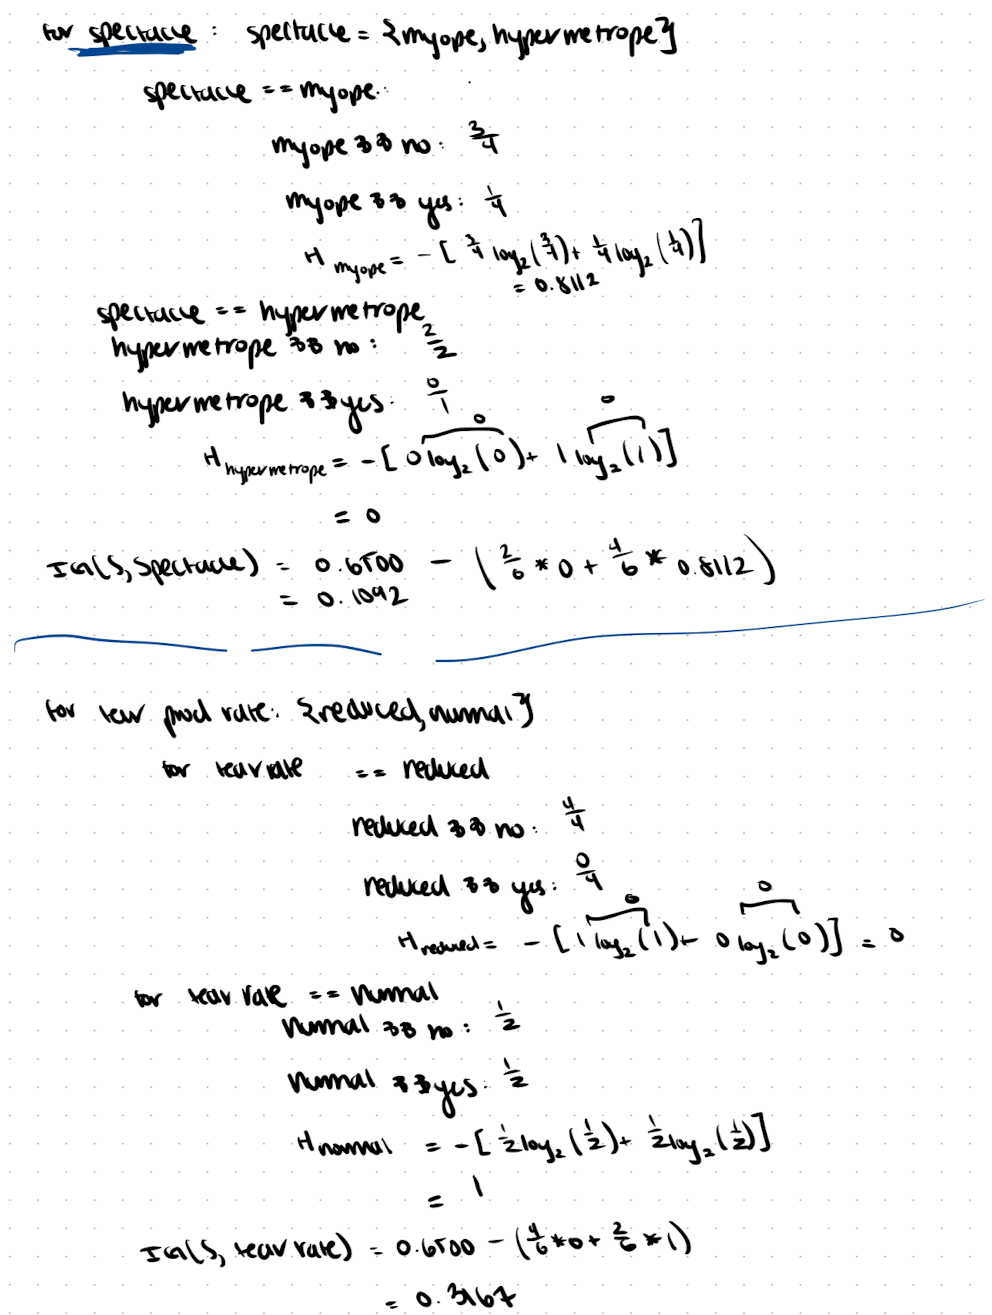 for spectacle : spectacle = {myope, hypermetrope}
spectacle == myope:
myope && no: 3/4
myope && yes: 1/4
H myope = - [ 3/4 log₂ (3/4) + 1/4 log₂ (1/4) ]
= 0.8112
spectacle == hypermetrope
hypermetrope && no : 2/2
hypermetrope && yes: 0/1
0 0
H hypermetrope = - [ 0 log₂ (0) + 1 log₂ (1) ]
= 0
IG(S, Spectacle) = 0.6500 - ( 2/6 * 0 + 4/6 * 0.8112 )
= 0.1092
for tear prod rate: {reduced, normal}
for tear rate == reduced
reduced && no: 4/4
reduced && yes: 0/4
0 0
H reduced = - [ 1 log₂ (1) + 0 log₂ (0) ] = 0
for tear rate == normal
normal && no : 1/2
normal && yes: 1/2
H normal = - [ 1/2 log₂ (1/2) + 1/2 log₂ (1/2) ]
= 1
IG(S, tear rate) = 0.6500 - ( 4/6 * 0 + 2/6 * 1 )
= 0.3167